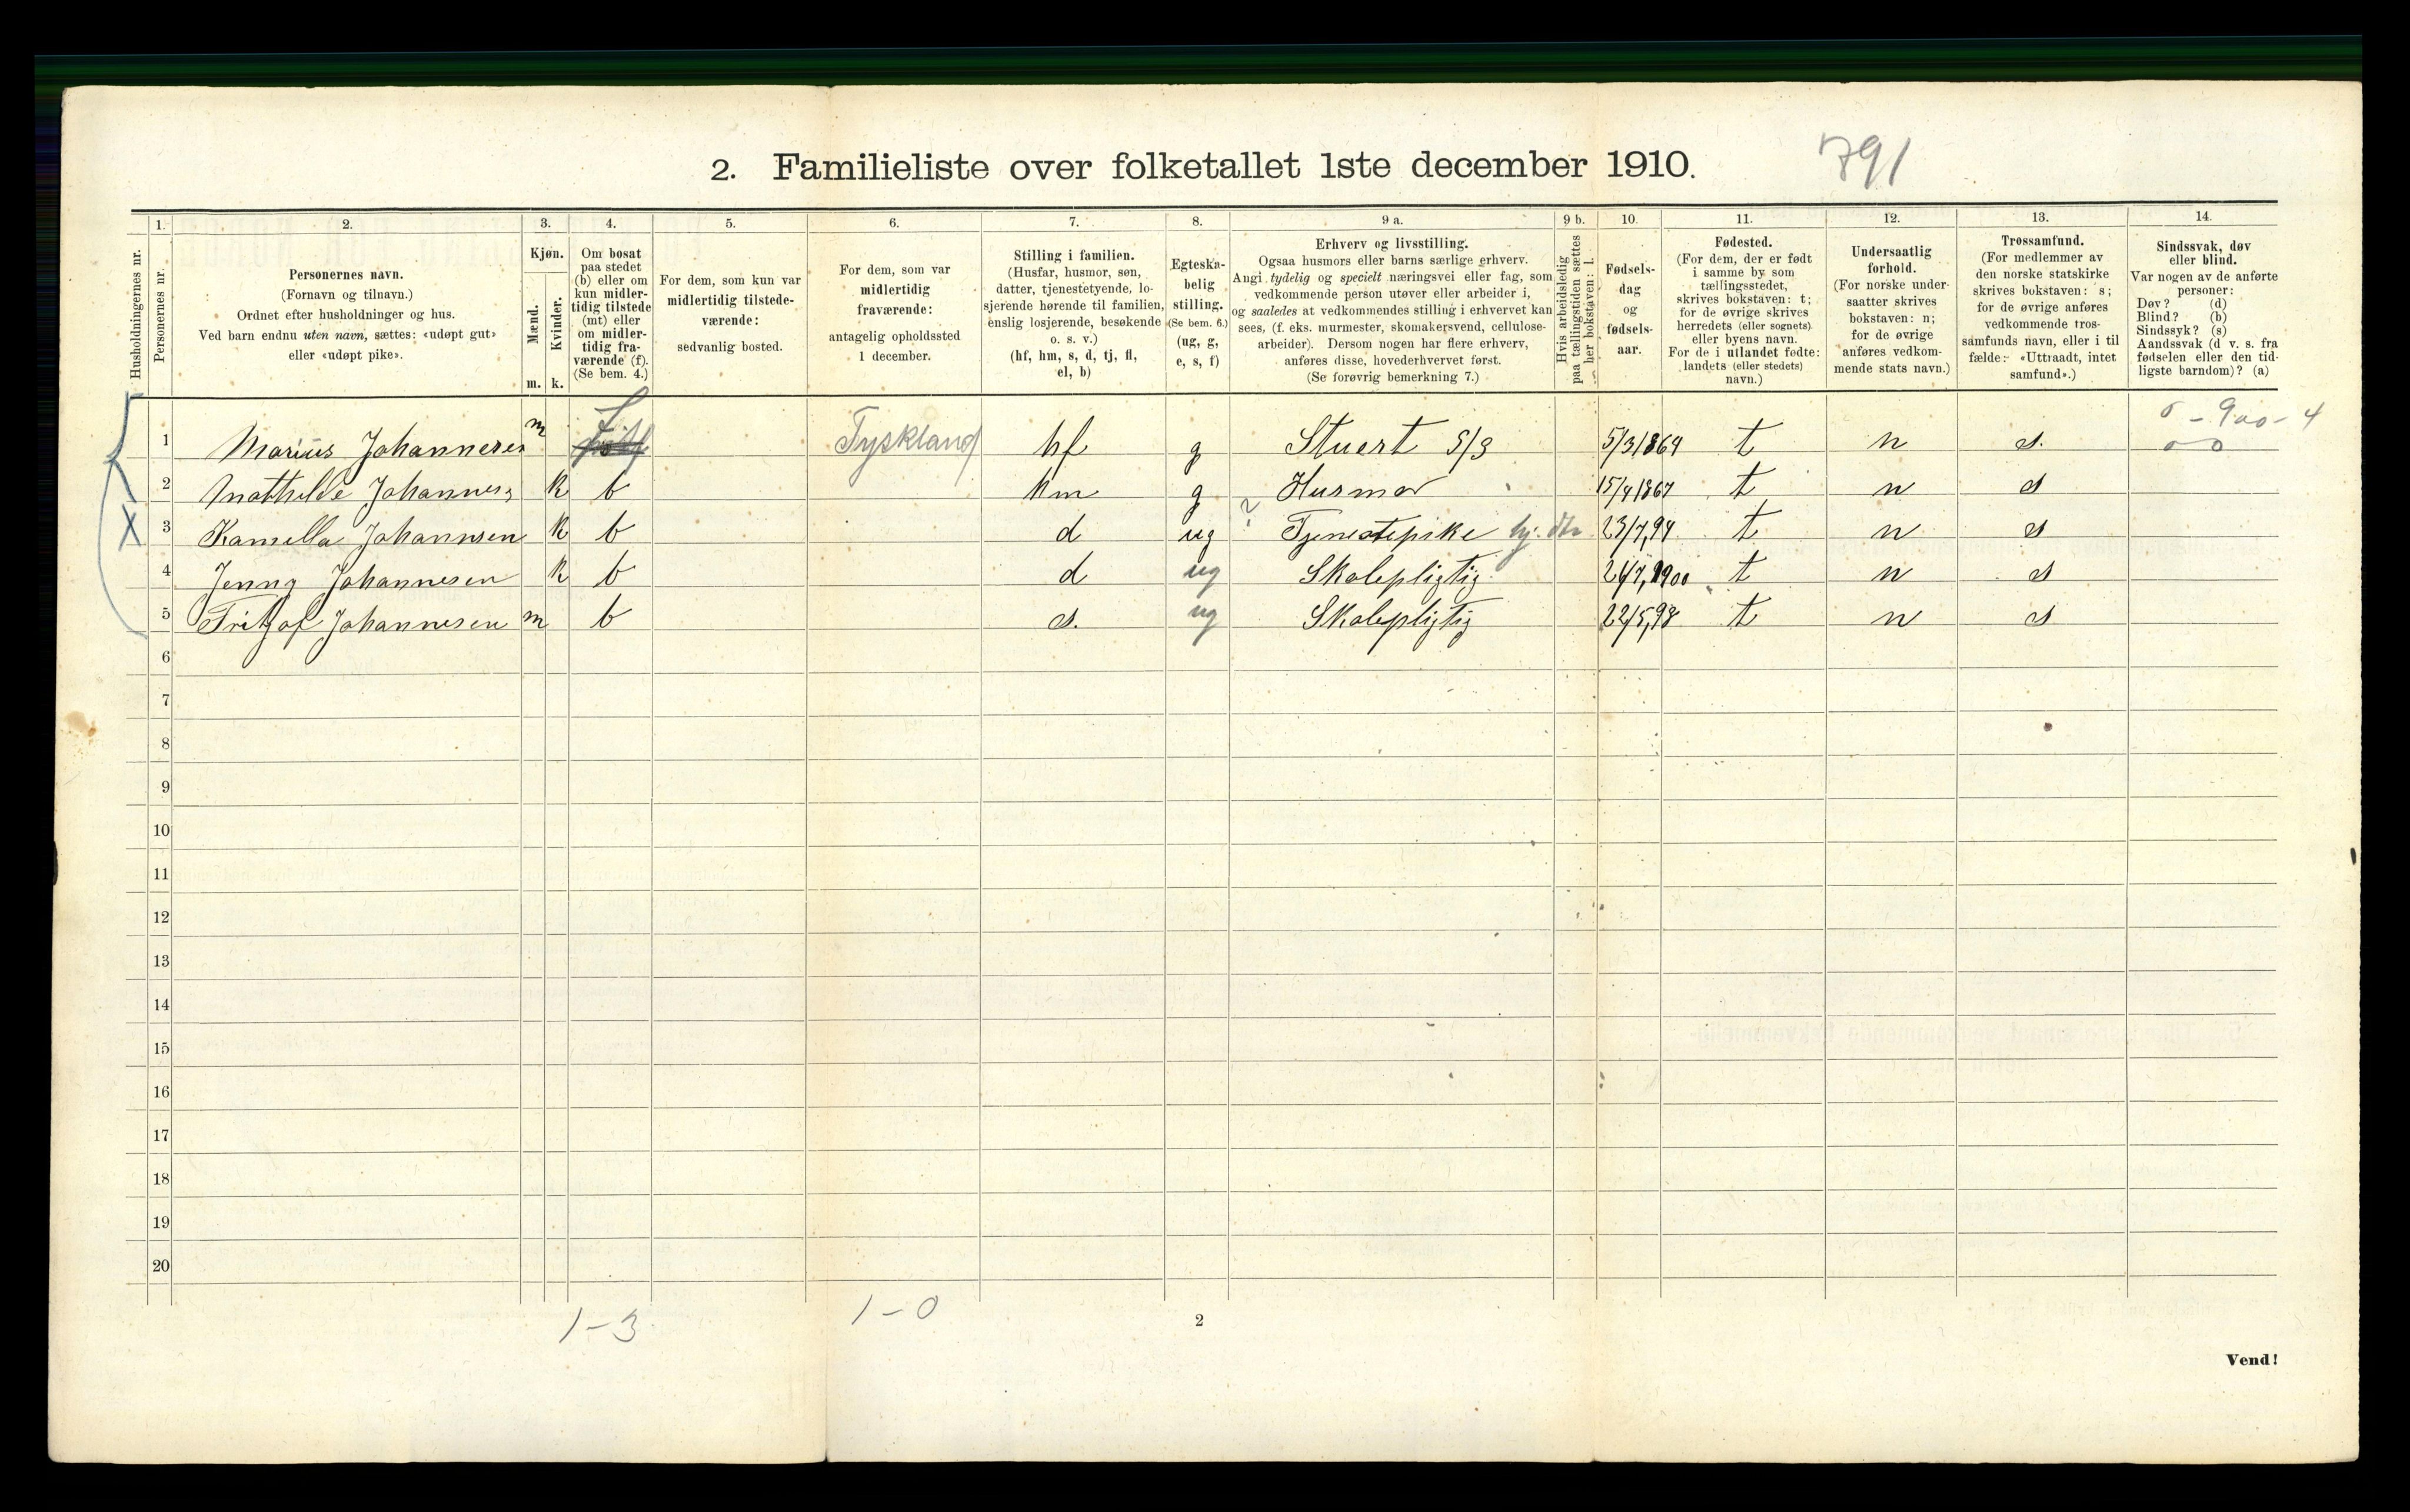 2. Familieliste over folketallet 1ste december 1910. 791
1. 2. 3. 4. 5. 6. 7. 8. 9 a. 9 b. 10. 11. 12. 13. 14.
Husholdningernes nr.
Personernes nr.
Personernes navn.
(Fornavn og tilnavn.)
Ordnet efter husholdninger og hus.
Ved barn endnu uten navn, sættes: «udøpt gut»
eller «udøpt pike».
Kjøn.
Mænd.
Kvinder.
m. k.
Om bosat
paa stedet
(b) eller om
kun midler-
tidig tilstede
(mt) eller
om midler-
tidig fra-
værende (f).
(Se bem. 4.)
For dem, som kun var
midlertidig tilstede-
værende:
sedvanlig bosted.
For dem, som var
midlertidig
fraværende:
antagelig opholdssted
1 december.
Stilling i familien.
(Husfar, husmor, søn,
datter, tjenestetyende, lo-
sjerende hørende til familien,
enslig losjerende, besøkende
o. s. v.)
(hf, hm, s, d, tj, fl,
el, b)
Egteska-
belig
stilling.
(Se bem. 6.)
(ug, g,
e, s, f)
Erhverv og livsstilling.
Ogsaa husmors eller barns særlige erhverv.
Angi tydelig og specielt næringsvei eller fag, som
vedkommende person utøver eller arbeider i,
og saaledes at vedkommendes stilling i erhvervet kan
sees, (f. eks. murmester, skomakersvend, cellulose-
arbeider). Dersom nogen har flere erhverv,
anføres disse, hovederhvervet først.
(Se forøvrig bemerkning 7.)
Hvis arbeidsledig
paa tællingstiden sættes
her bokstaven: l.
Fødsels-
dag
og
fødsels-
aar.
Fødested.
(For dem, der er født
i samme by som
tællingsstedet,
skrives bokstaven: t;
for de øvrige skrives
herredets (eller sognets)
eller byens navn.
For de i utlandet fødte:
landets (eller stedets)
navn.)
Undersaatlig
forhold.
(For norske under-
saatter skrives
bokstaven: n;
for de øvrige
anføres vedkom-
mende stats navn.)
Trossamfund.
(For medlemmer av
den norske statskirke
skrives bokstaven: s;
for de øvrige anføres
vedkommende tros-
samfunds navn, eller i til
fælde: «Uttraadt, intet
samfund».)
Sindssvak, døv
eller blind.
Var nogen av de anførte
personer:
Døv? (d)
Blind? (b)
Sindssyk? (s)
Aandssvak (d v. s. fra
fødselen eller den tid-
ligste barndom)? (a)
1 Marius Johannesen m f Tyskland hf g Stuert S/S 5/3 1864 t n s. 0-900-4
2 Mathilde Johannes k b hm g Husmor 15/4 1867 t n s
X 3 Kamilla Johannsen k b d ug ? Tjenestepike hj. dtr 23/7, 94 t n s
4 Jenny Johannesen k b d ug Skolepligtig 1900 t n s
5 Fritjof Johannesen m b s. ug Skolepligtig 22/5, 98 t n s
6
7
8
9
10
11
12
13
14
15
16
17
18
19
20
1-3 1-0
2
Vend!